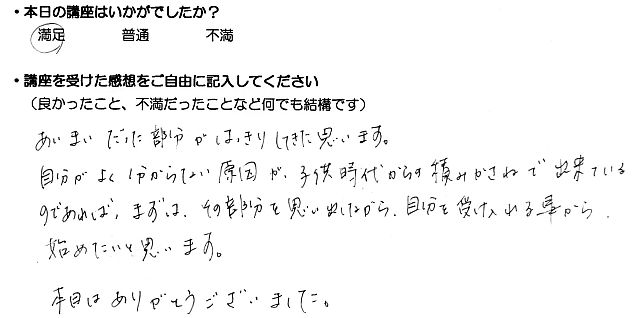 ・本日の講座はいかがでしたか？
満足 普通 不満
・講座を受けた感想をご自由に記入してください
（良かったこと、不満だったことなど何でも結構です）
あいまいだった部分がはっきりしてきた思います。
自分がよく分からない原因が、子供時代からの積みかさねで出来ている
のであれば、まずは、その部分を思い出しながら、自分を受け入れる事から
始めたいと思います。
本日はありがとうございました。